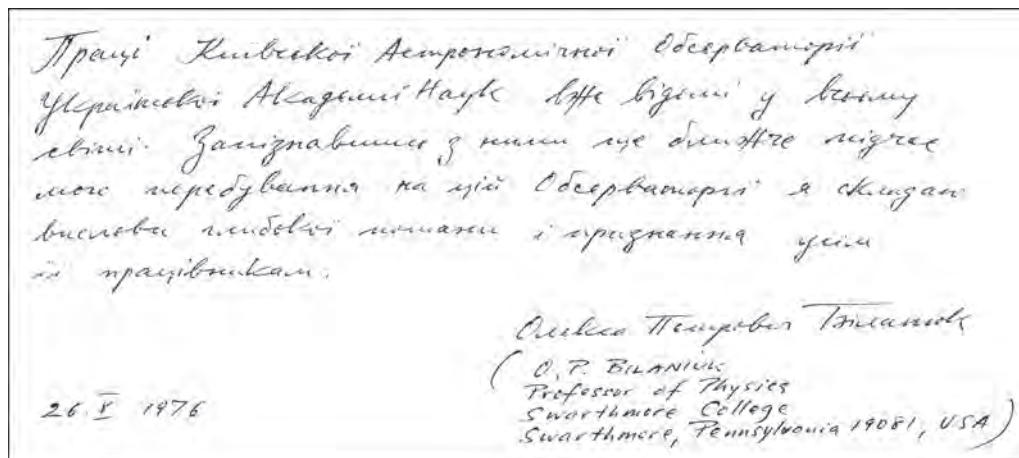 Праці Київської Астрономічної Обсерваторії
Української Академії Наук вже відомі у всьому
світі. Запізнавшися з ними ще ближче підчас
мого перебування на цій Обсерваторії я складаю
вислови глибокої пошани і признання усім
її працівникам.
Олекса Петрович Біланюк
( O. P. BILANIUK
Professor of Physics
Swarthmore College
Swarthmore, Pennsylvania 19081, USA )
26 V 1976